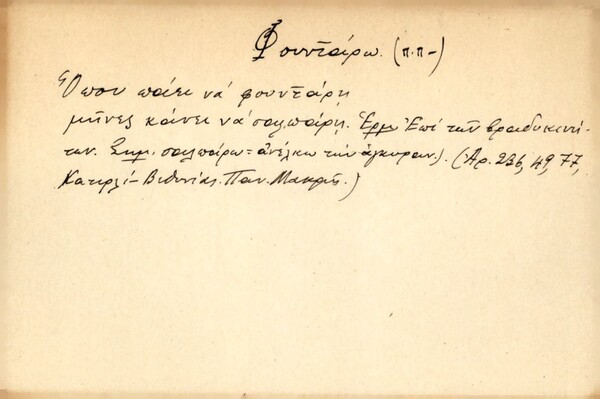 Φουντάρω. (π.π-)
Ὅπου πάει νὰ φουντάρῃ
μῆνες κάνει νὰ σαλπάρῃ. Ἑρμ. Ἐπὶ τῶν βραδυκινή-
των. Σημ. σαλπάρω = ἀνέλκω τὴν ἄγκυραν). (Ἀρ. 236, 49, 77,
Κατιρλί - Βιθυνίας. Παν. Μακρῆς.)